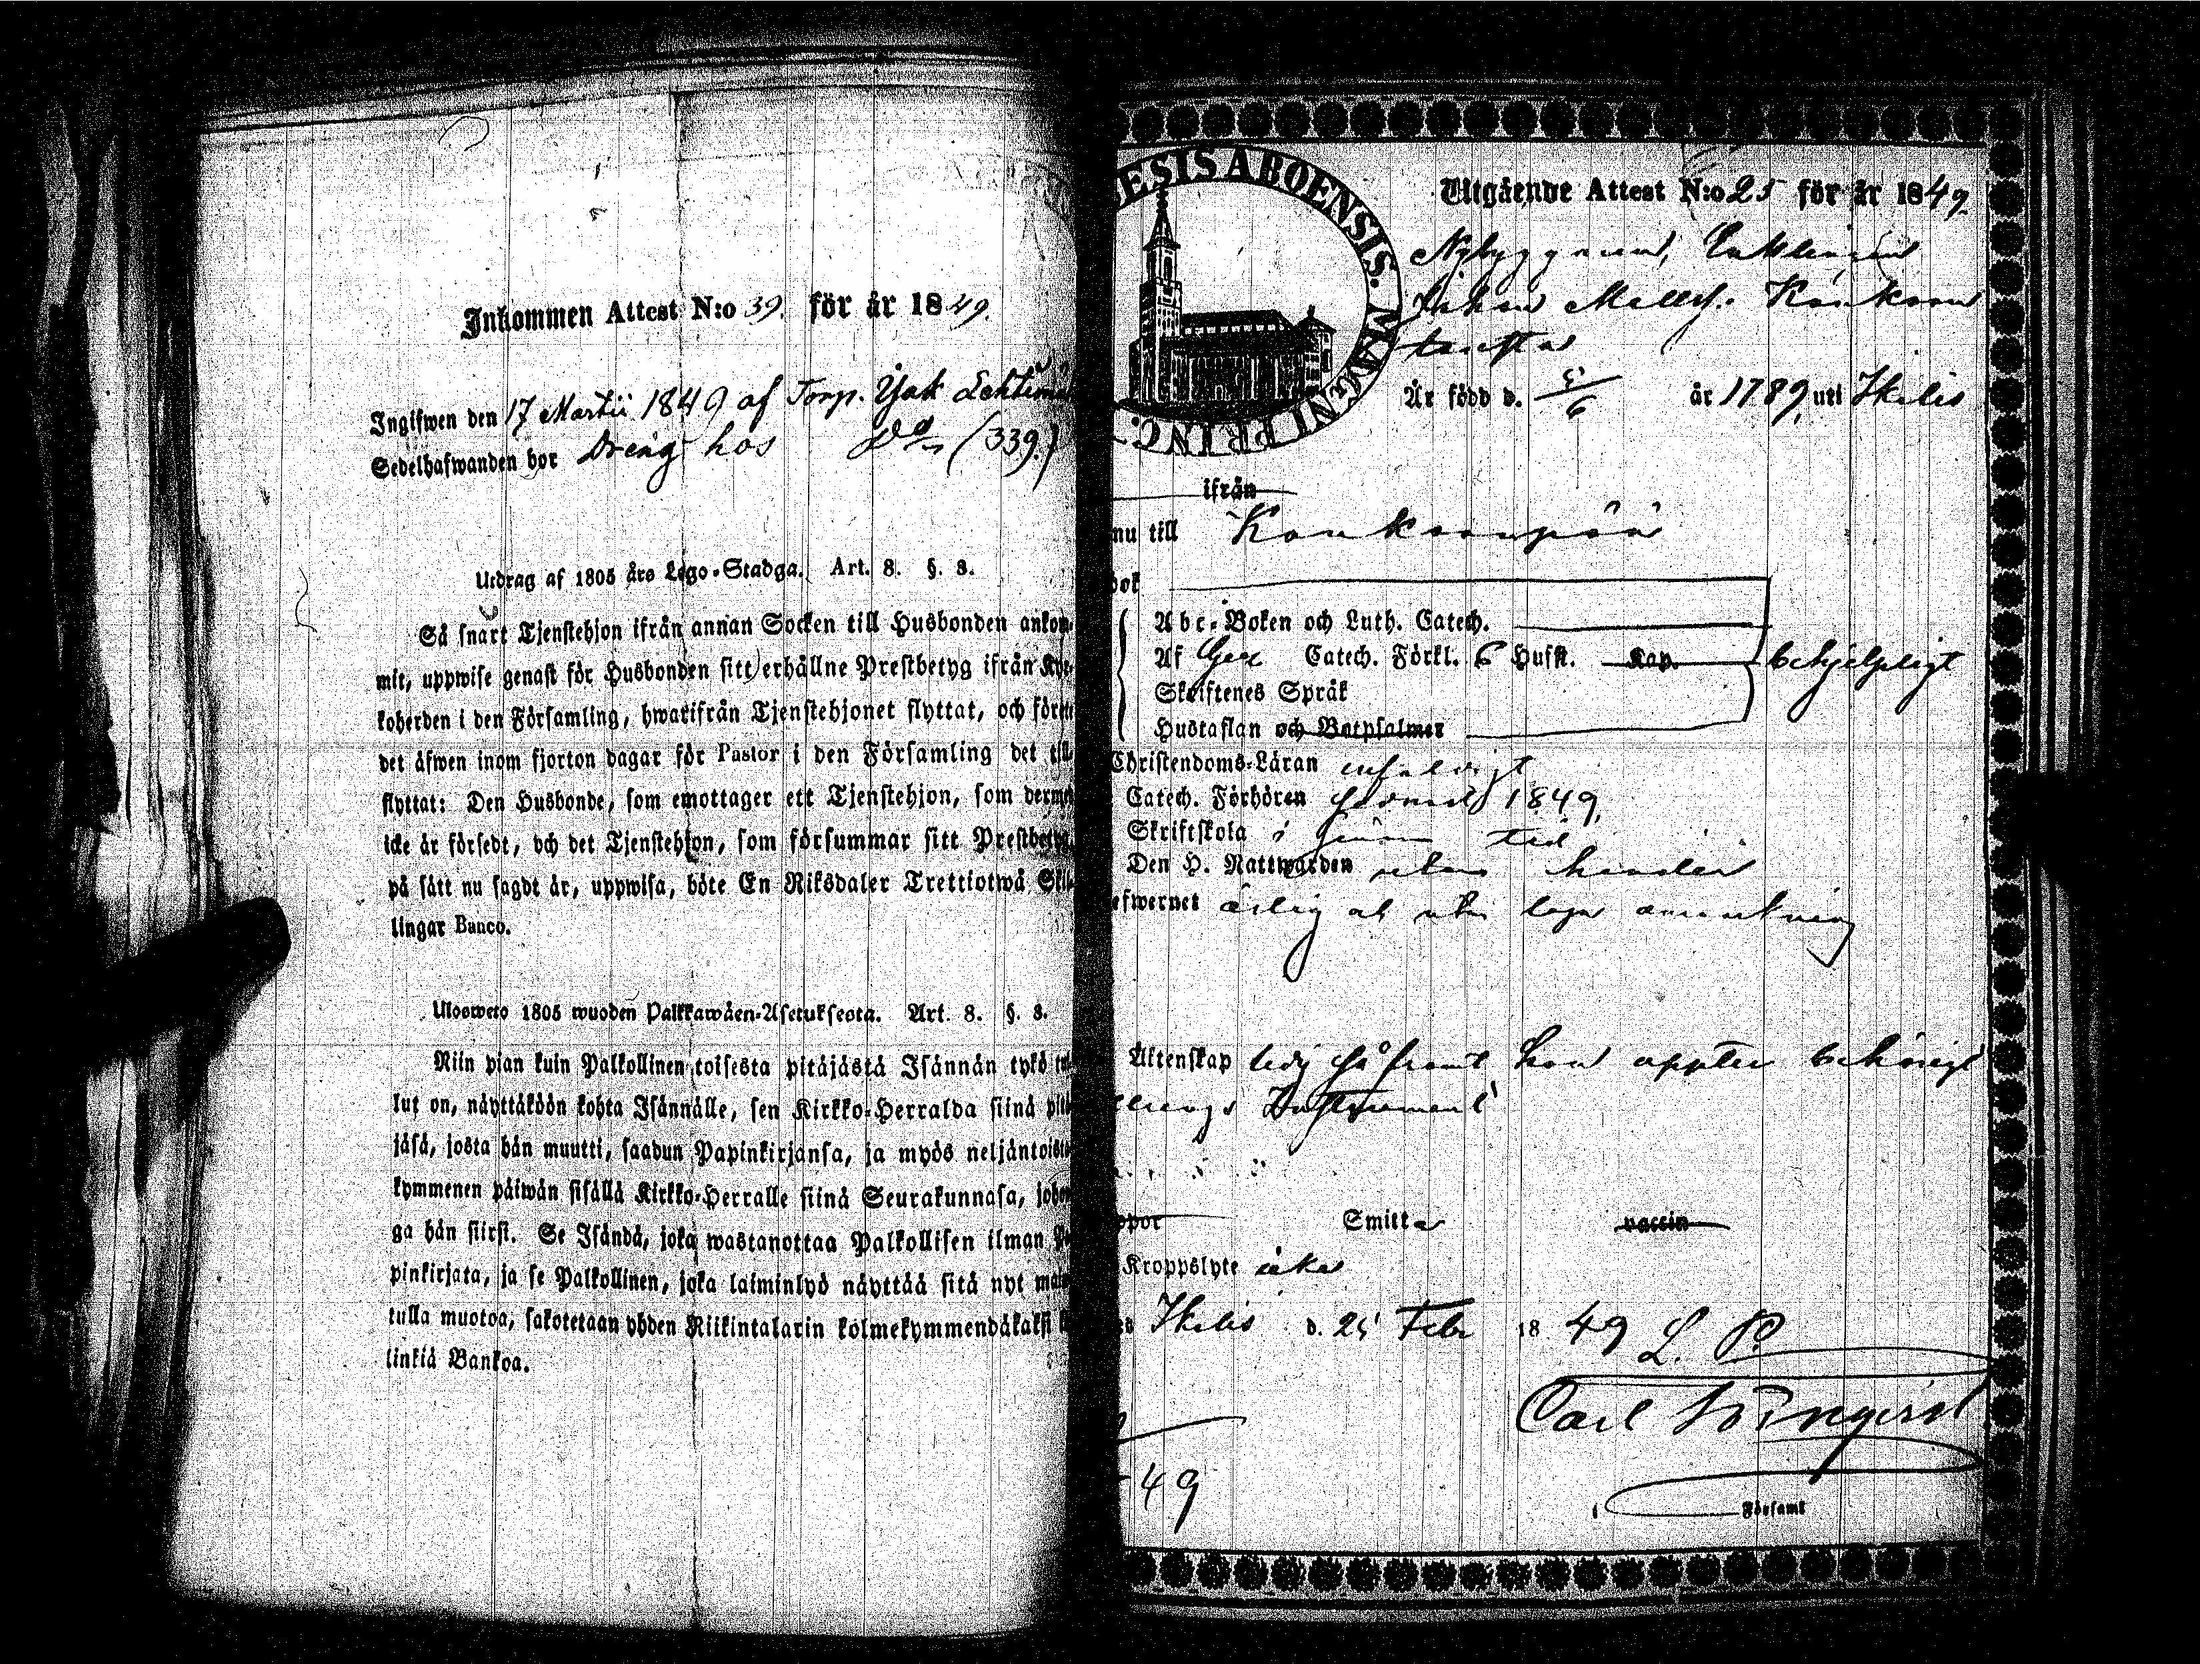 Inkommen Attest N:o 39. för år 1849.
Ingifwen den 17 Martii 1849 af Torp. Isak
Sedelhafwanden bor Dreng hos Do (339.)
Utdrag af 1805 års Lego-Stadga. Art. 8. §. 3.
Så snart Tjenstehjon ifrån annan Socken till Husbonden ankom-
mit, uppwise genast för Husbonden sitt erhållne Prestbetyg ifrån Kyr-
koherden i den Församling, hwarifrån Tjenstehjonet flyttat, och förete
det äfwen inom fjorton dagar för Pastor i den Församling det till-
flyttat: Den Husbonde, som emottager ett Tjenstehjon, som dermed
icke är försedt, och det Tjenstehjon, som försummar sitt Prestbetyg,
på sätt nu sagdt är, uppwisa, böte En Riksdaler Trettiotwå Skil-
lingar Banco.
Ulosweto 1805 wuoden Palkkawäen-Asetuksesta. Art. 8. §. 3.
Niin pian kuin Palkollinen toisesta pitäjästä Isännän tykö tul-
lut on, näyttäköön kohta Isännälle, sen Kirkko-Herralda siinä pitä-
jäsä, josta hän muutti, saadun Papinkirjansa, ja myös neljäntoista-
kymmenen päiwän sisällä Kirkko-Herralle siinä Seurakunnasa, johon-
ga hän siirsi. Se Isändä, joka wastanottaa Palkollisen ilman Pa-
pinkirjata, ja se Palkollinen, joka laiminlyö näyttää sitä nyt mai-
tulla muotoa, sakotetaan yhden Riikintalarin kolmekymmendäkaksi
linkiä Bankoa.
ESIS ABOENSIS. MAGNI PRINC.
Utgående Attest N:o 25 för år 1849.
Nybyggaren, Enklingen
Johan
Är född d. 5/6 år 1789, uti Ikalis
ifrån
nu till
bok
Abc-Boken och Luth. Catech.
Af Gez Catech. Förkl. 6 Hufst. Kap. behjelpligt
Skriftenes Språk
Hustaflan och Botpsalmer
Christendoms-Läran enfaldigt
Catech. Förhören 1849,
Skriftskola i tid
Den H. Nattwarden utan hinder
efwernet ärlig och utan laga anmärkning
Äktenskap ledig såframt han uppter behörigt
Instrument
ppor Smitta vaccin
Kroppslyte icke
Ikalis d. 25 Febr 1849 L. P.
Carl
49
Församl